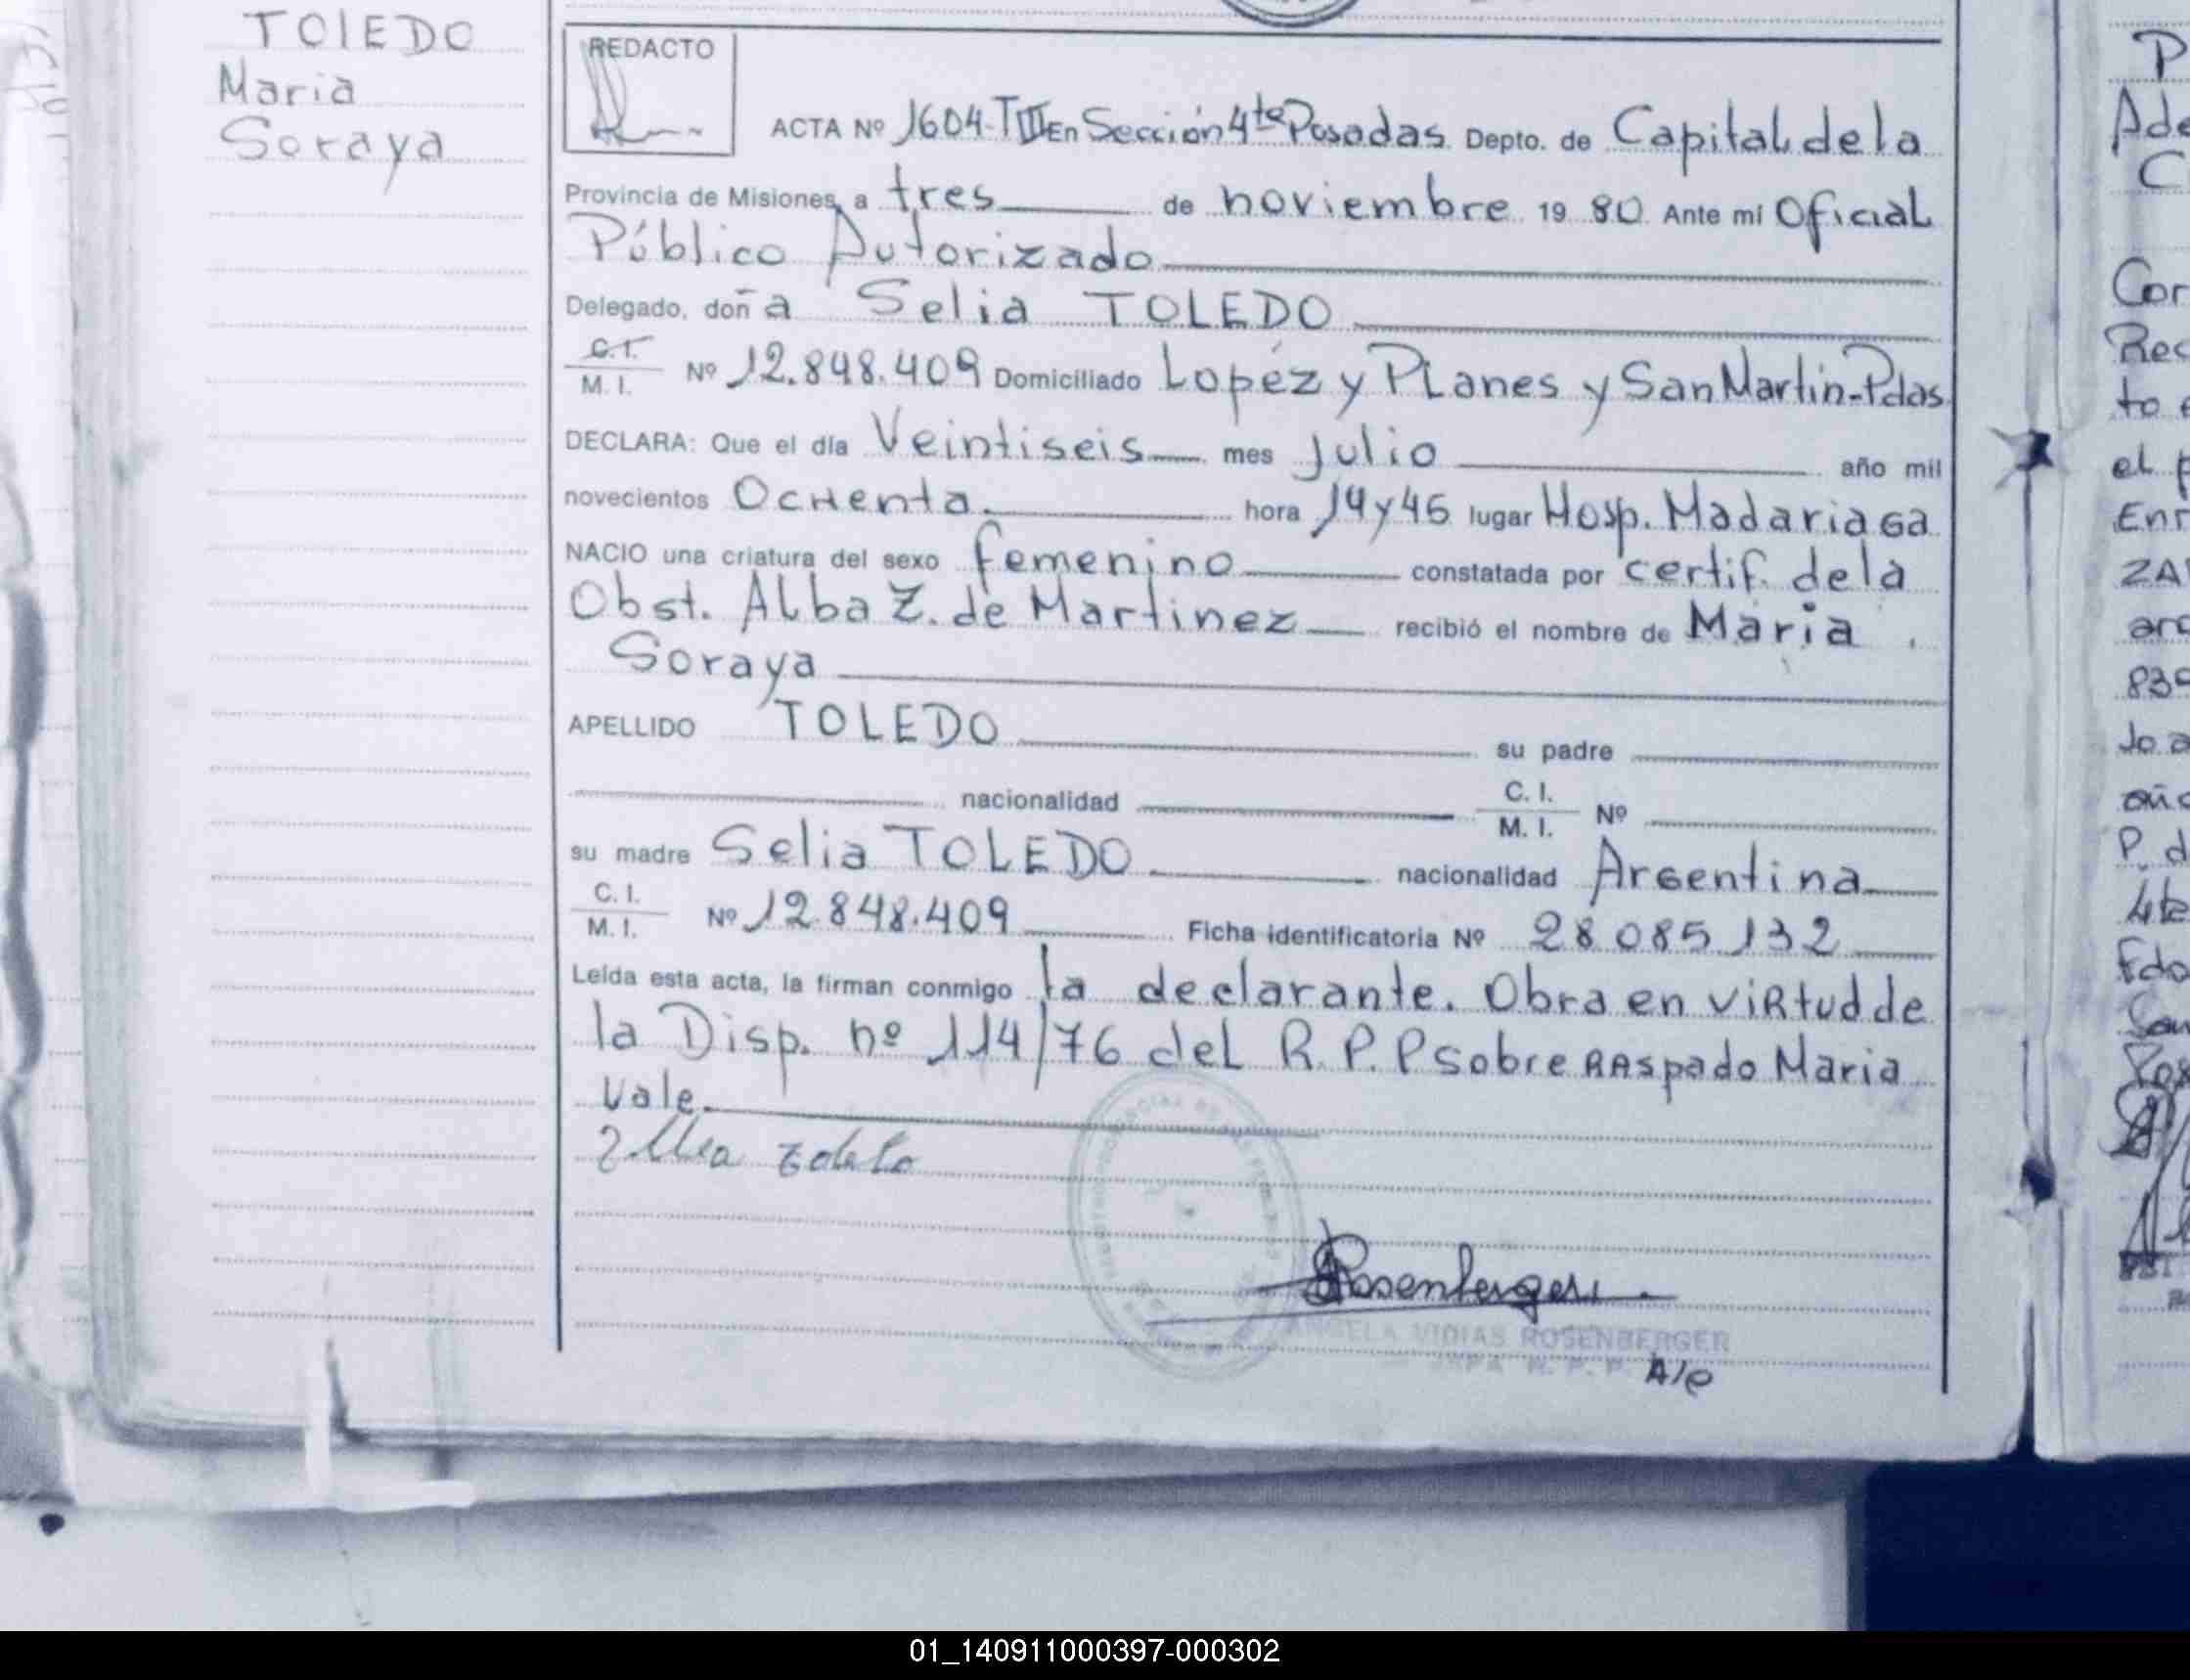 TOLEDO
Maria
Soraya
REDACTO
ACTA Nº 1604-TIII En Sección 4ta Posadas Depto. de Capital de la
Provincia de Misiones, a tres de noviembre 19 80 Ante mi Oficial
Público Autorizado
Delegado, doña Selia TOLEDO
C.I.
M. I. Nº 12.848.409 Domiciliado Lopéz y PLanes y San Martin-Pdas
DECLARA: Que el día Veintiseis mes Julio año mil
novecientos OcHenta hora 14 y 45 lugar Hosp. Madariaga
NACIO una criatura del sexo femenino constatada por certif. de la
Obst. Alba Z. de Martinez recibió el nombre de Maria
Soraya
APELLIDO TOLEDO su padre
nacionalidad C. I.
M. I. Nº
su madre Selia TOLEDO nacionalidad Argentina
C. I.
M. I. Nº 12.848.409 Ficha identificatoria Nº 28 085 132
Leída esta acta, la firman conmigo la declarante. Obra en viRtud de
la Disp. nº 114/76 del R. P. P sobre RAspado Maria
Vale.
Rosenberger
ANGELA VIDIAS ROSENBERGER
R. P. P. A/c
P
Ade
C
Cor
Rec
to
el p
Enr
ZA
arc
839
Jo a
año
P. d
4ta
Edo
01_140911000397-000302